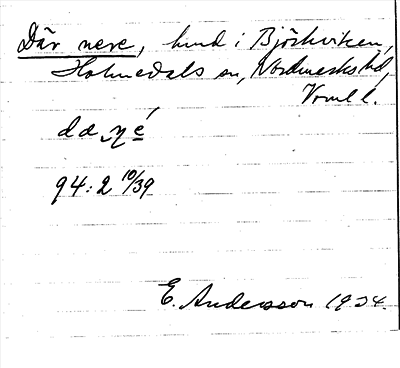 Där nere, hmd i Björkviken,
Holmedals sn, Nordmarks hd,
Vrml l.
94:2 10/39
E. Andersson 1934.